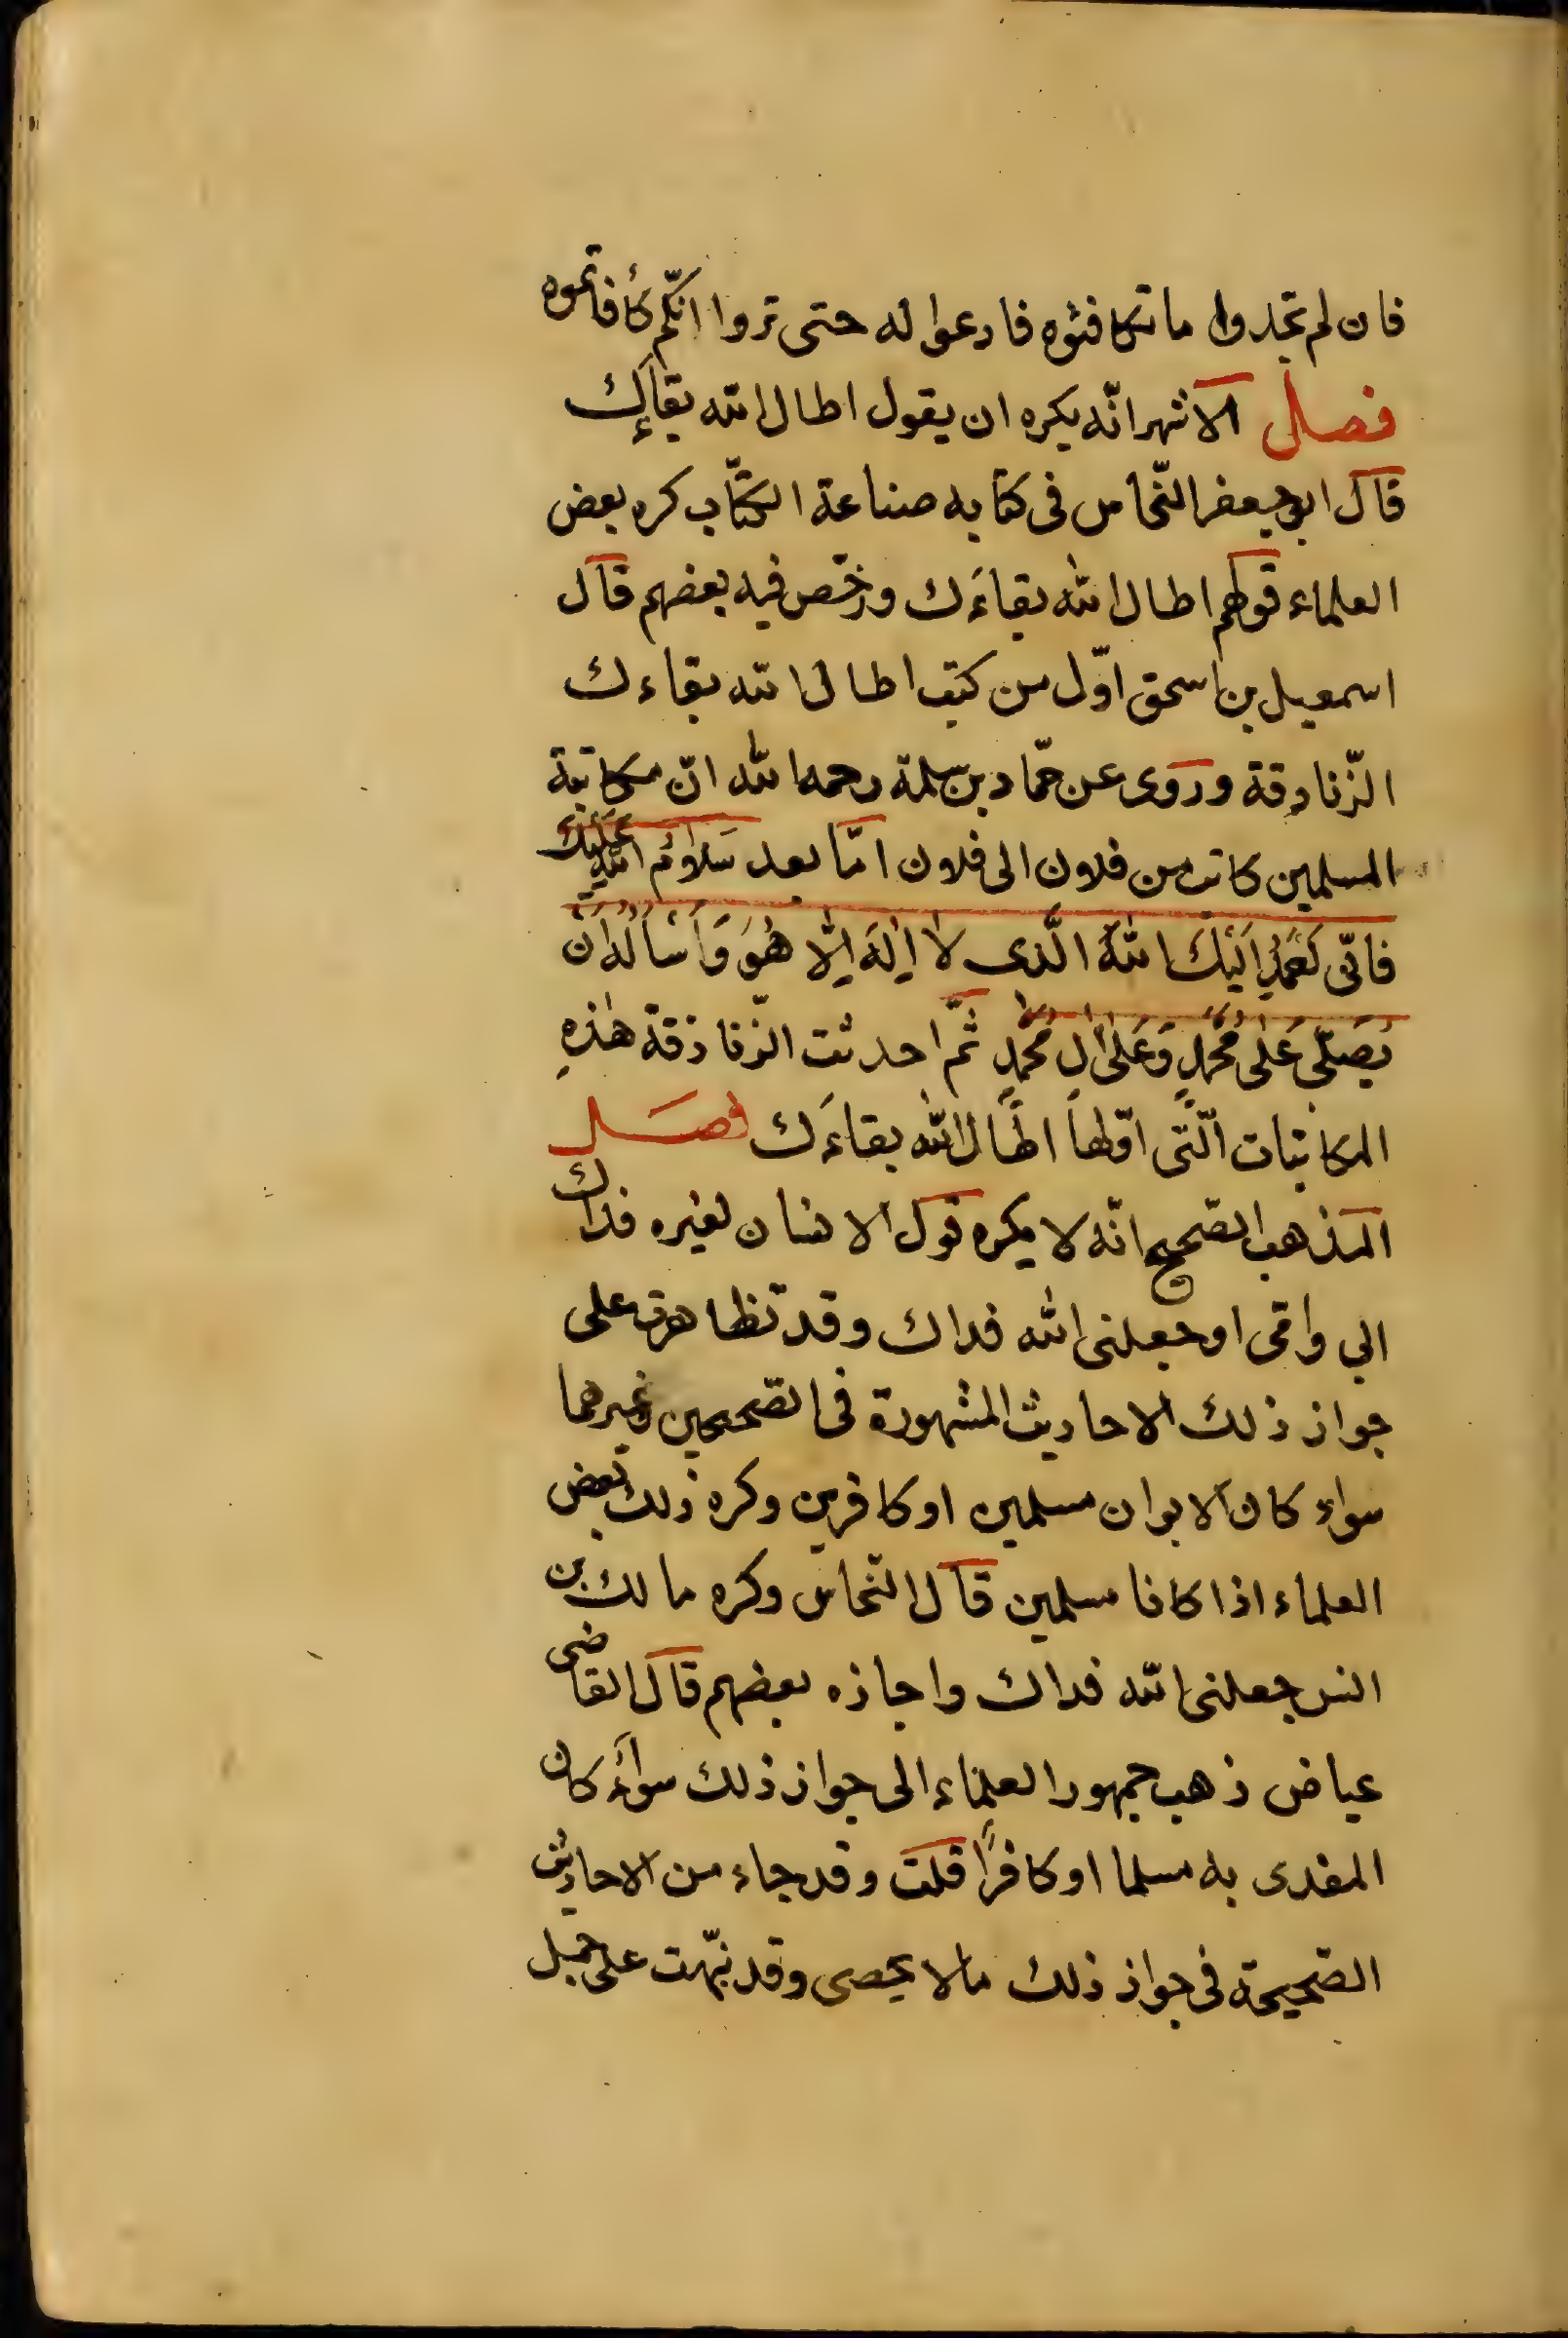 فان لم تجدوا ما تكافئوه فادعوا له حتى تروا انّكم كأفاتموه
فصل الاشهر انّه يكره ان يقول اطال الله بقاءك
قال ابو جعفر النّحاس فى كتابه صناعة الكتّاب كره بعض
العلماء قولهم اطال الله بقاءَك ورخّص فيه بعضهم قال
اسمعيل بن اسحق اوّل من كتب اطال الله بقاءك
الزّنادقة وروى عن حمّاد بن سلمة رحمه الله انّ مكاتبة
المسلمين كانت من فلان الى فلان امّا بعد سَلَامُ اللهِ عَلَيْكَ
فانّى اَحْمَدُ اِلَيْكَ اللهَ الَّذى لا اِلٰهَ اِلَّا هُوَ وَاَسْاَلُهُ اَنْ
يُصَلِّىَ عَلٰى مُحَمَّدٍ وَعَلٰى اٰلِ مُحَمَّدٍ ثمّ احدثت الزّنادقة هٰذهِ
المكاتبات الّتى اوّلها اطال الله بقاءَك فصَل
المذهب الصّحيح انّه لا يكره قول الانسان لغيره فداك
ابي وامّى او جعلنى الله فداك وقد تظاهرت على
جواز ذلك الاحاديث المشهورة فى الصّحيحين وغيرهما
سواء كان الابوان مسلمين او كافرين وكره ذلك بعض
العلماء اذا كانا مسلمين قال النّحاس وكره مالك بن
انس جعلنى الله فداك واجازه بعضهم قال القاضى
عياض ذهب جمهور العلماء الى جواز ذلك سواءَ كان
المفدى به مسلما او كافرًا قلت وقد جاء من الاحاديث
الصّحيحة فى جواز ذلك مالا يحصى وقد نبّهت على جمل